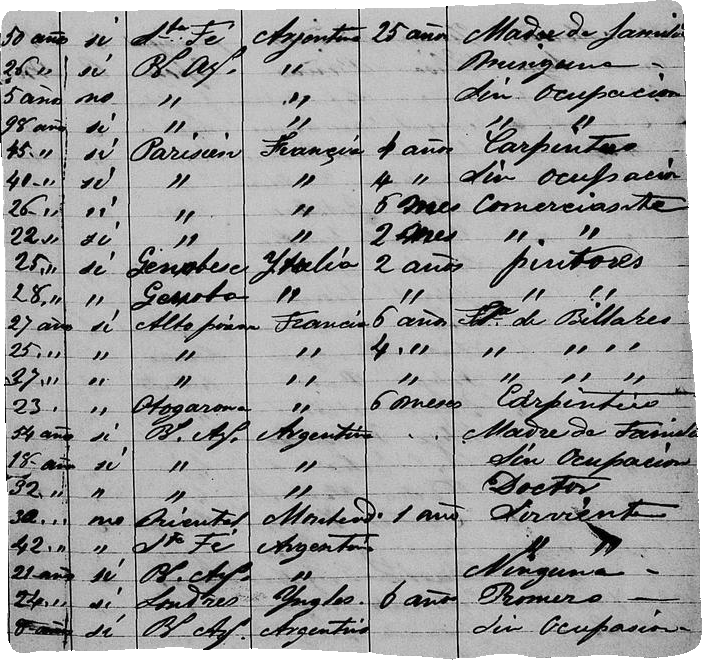 50 año si Sta Fé Argentina 25 años Madre de familia
26 „ si Bs. Ays. „ Ninguna —
5 año no „ „ Sin Ocupacion
98 año si „ „ „ „
45 „ si Parisien Francia 4 años Carpintero
40 „ si „ „ 4 „ Sin Ocupacion
26 „ si „ „ 6 mes Comerciante
22 „ si „ „ 2 mes „ „
25 „ si Genobese Ytalia 2 años pintores —
28 „ „ Genoba „ „ „ „
27 año si Francia 6 años de Billares
25 „ „ „ „ 4 „ „ „ „ „
27 „ „ „ „ „ „ „ „
23 „ „ 6 meses Carpintero
54 año si Bs. Ays. Argentina . . Madre de Familia
18 año si „ „ Sin Ocupacion
32 „ „ „ „ Doctor
30 „ no Oriental Montevid. 1 año Sirviente
42 „ „ Sta Fé Argentina „ „
21 año si Bs. Ays. „ Ninguna —
24 „ si Londres Yngles. 6 años Romero —
8 año si Bs Ays. Argentina Sin Ocupasion